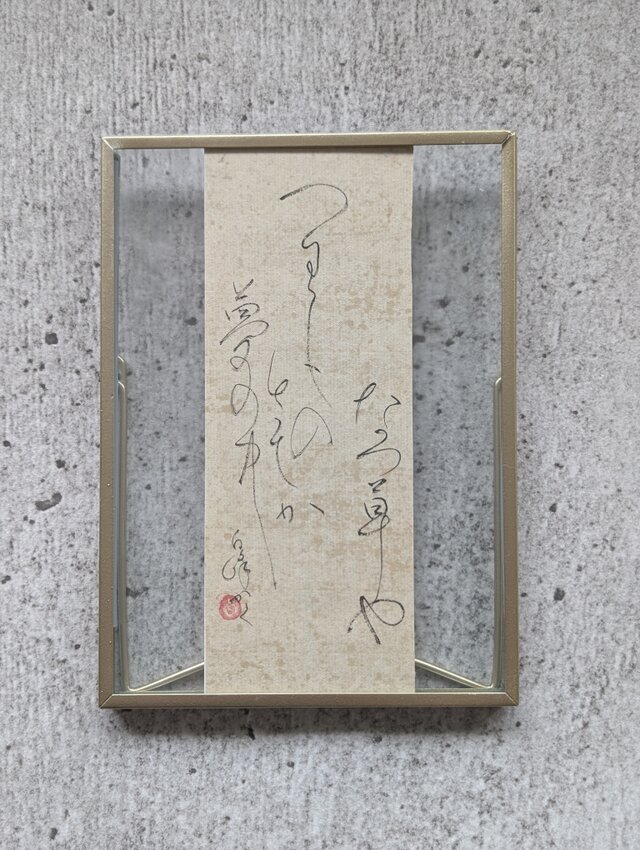 なつ草や
つわもの
ともか
夢の